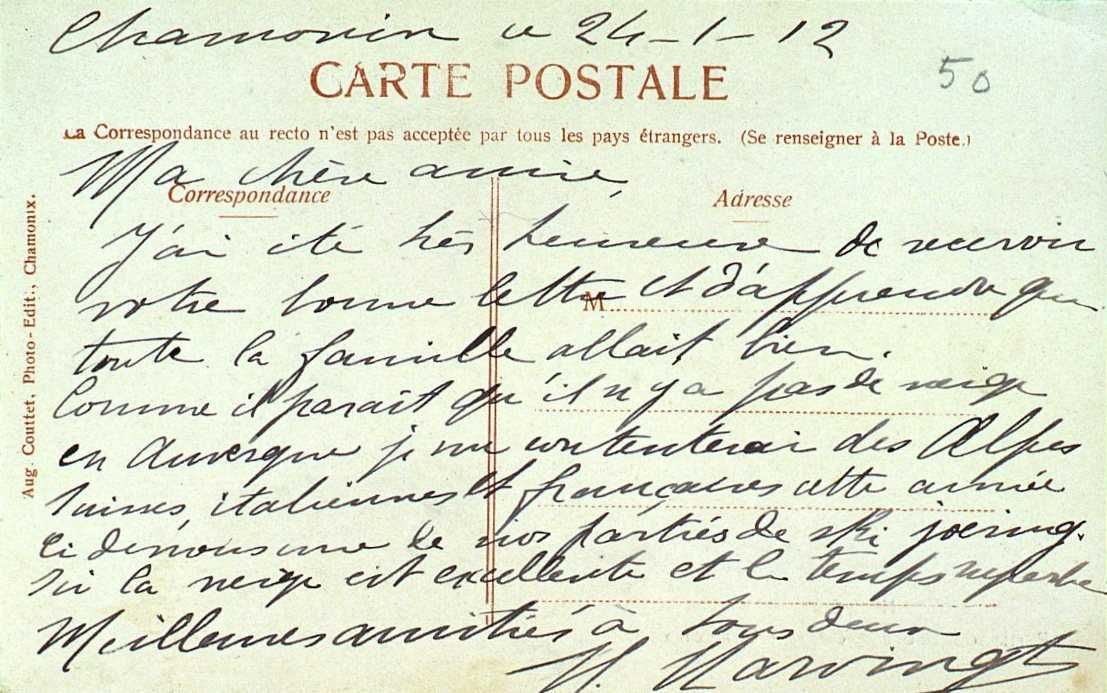 Chamonix le 24-1-12
CARTE POSTALE
50
La Correspondance au recto n'est pas acceptée par tous les pays étrangers. (Se renseigner à la Poste.)
Ma chère amie,
Correspondance
Adresse
J'ai été très heureuse de recevoir
votre bonne lettre et d'apprendre que
M
toute la famille allait bien.
Comme il parait qu'il n'y a pas de neige
en Auvergne je me contenterai des Alpes
suisses, italiennes et françaises cette année
ci dessous une de nos parties de ski joering.
Ici la neige est excellente et le temps superbe
Meilleures amitiés à tous deux
M. Marvingt
Aug. Couttet, Photo-Edit., Chamonix.